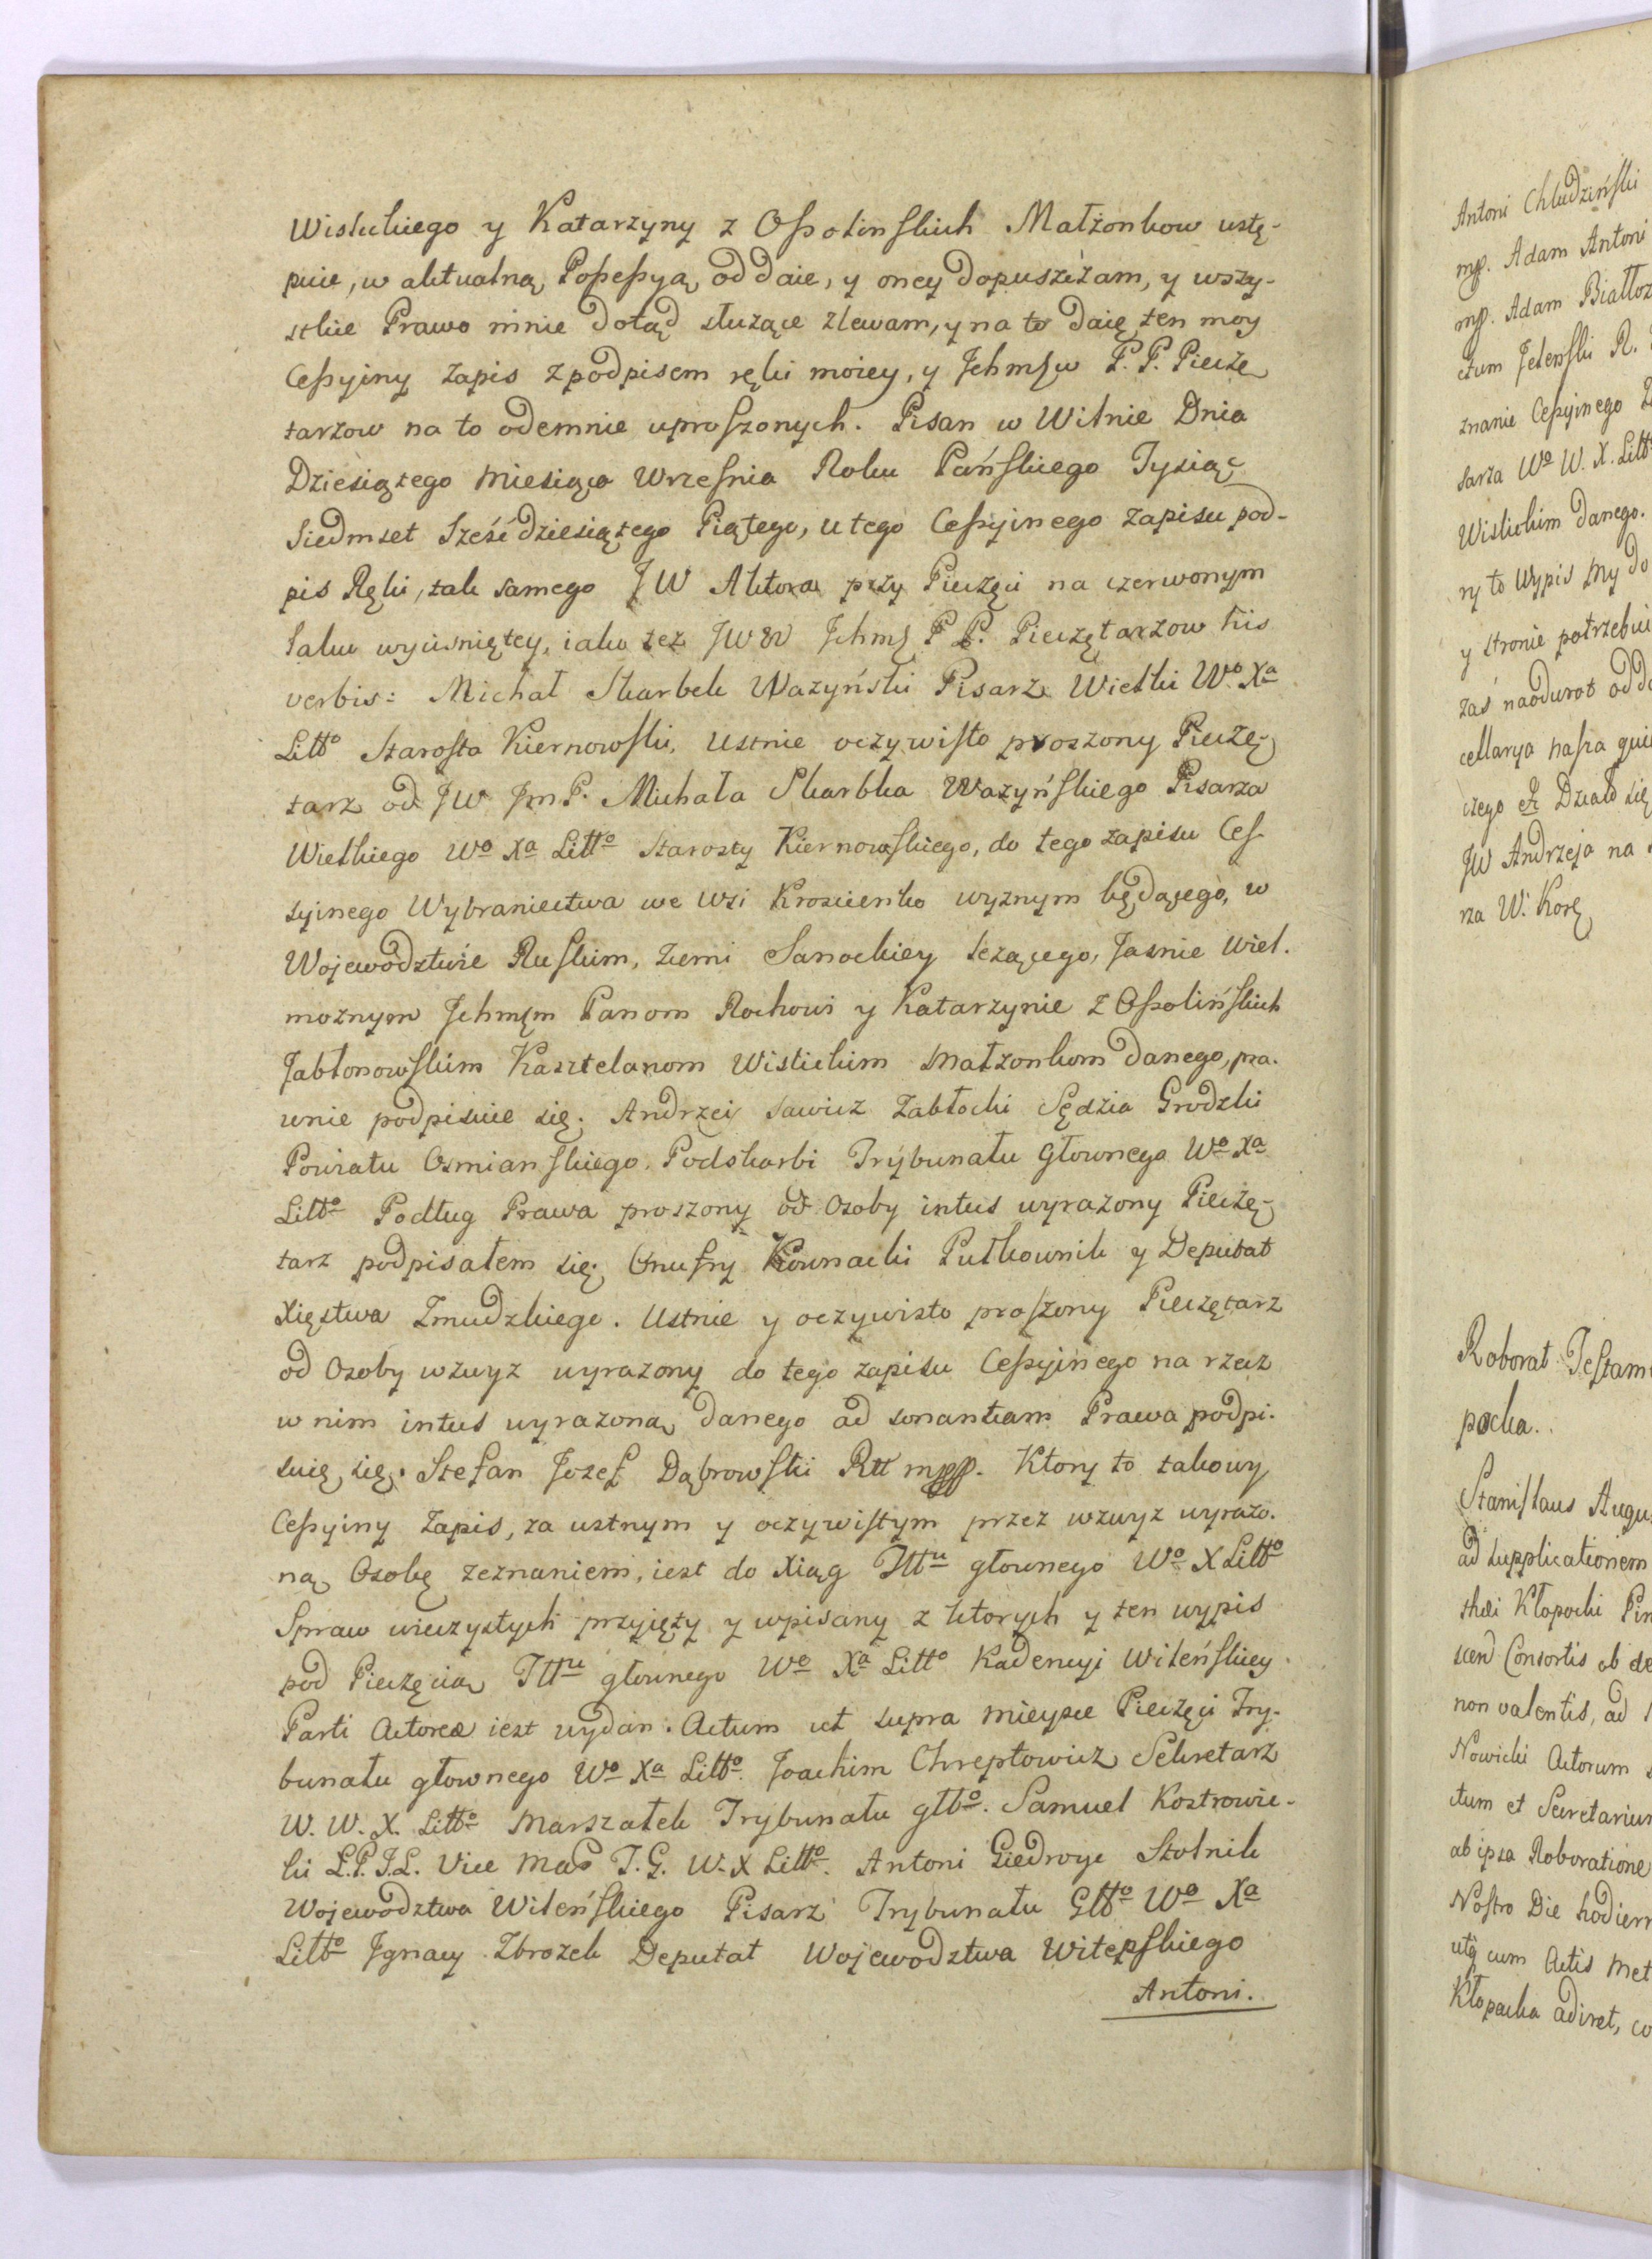 Wislickiego y Katarzyny z Ossolinskich Małżonkow ustę-
puie, w aktualną Possessyą oddaie, y oney dopuszczam, y wszy-
stkie Prawo mnie dotąd służące zlewam, y na to daię ten moy
Cessyiny Zapis z podpisem ręki moiey, y Jchmsw P. P. Pieczę
tarzow na to odemnie uproszonych. Pisan w Wilnie Dnia
Dziesiątego Miesiąca Wrzesnia Roku Pańskiego Tysiąc
Siedmset Sześćdziesiątego Piątego, u tego Cessyinego Zapisu pod-
pis Ręki, tak samego JW Aktora przy Pieczęci na czerwonym
Laku wycisniętey, iako też JWW Jchms P P. Pieczętarzow his
verbis: Michał Skarbek Ważyński Pisarz Wielki Wo Xa
Litto Starosta Kiernowski, Ustnie oczywisto proszony Pieczę-
tarz od JW JmP. Michała Skarbka Ważyńskiego Pisarza
Wielkiego Wo Xa Litto Starosty Kiernowskiego, do tego zapisu Ces-
syinego Wybraniectwa we Wsi Krościenko wyżnym będącego, w
Wojewodztwie Ruskim, Ziemi Sanockiey leżącego, Jasnie Wiel.
możnym Jchmsm Panom Rochowi y Katarzynie z Ossolińskich
Jabłonowskim Kasztelanom Wislickim Małżonkom danego, pra.
wnie podpisuie się. Andrzei Sawicz Zabłocki Sędzia Grodzki
Powiatu Osmianskiego, Podskarbi Trybunału Głownego Wo Xa
Litto Podług Prawa proszony od Osoby intus wyrażony Pieczę-
tarz podpisałem się. Onufry Kownacki Pułkownik y Deputat
Xięstwa Zmudzkiego. Ustnie y oczywisto proszony Pieczętarz
od Osoby wzwyż wyrażony do tego zapisu Cessyinego na rzecz
w nim intus wyrażoną danego ad sonantiam Prawa podpi.
suię się. Stefan Jozef Dąbrowski Rtt mpp. Ktory to takowy
Cessyiny Zapis, za ustnym y oczywistym przez wzwyż wyrażo.
ną Osobę zeznaniem, iest do Xiąg Tttu głownego Wo X Litto
Spraw wieczystych przyięty y wpisany z ktorych y ten wypis
pod Pieczęcią Tttu głownego Wo Xa Litto Kadencyi Wileńskiey
Parti Actorea iest wydan. Actum ut supra mieysce Pieczęci Try-
bunału głownego Wo Xa Litto. Joachim Chreptowicz Sekretarz
W. W. X. Litto Marszałek Trybunału gtto. Samuel Kostrowic-
ki L.P.J.L. Vice Mas T. G. W. X Litto. Antoni Giedroyc Stolnik
Wojewodztwa Wileńskiego Pisarz Trybunału Gtto Wo Xa
Litto Jgnacy Zbrożek Deputat Wojewodztwa Witepskiego
Antoni.
Antoni Chludziński
mp. Adam Antoni
mp. Adam Białłoz
ctum Jeleński R.
znanie Cessyinego Z
sarza Wo W. X. Litt
Wislickim danego.
ry to Wypis My do
y stronie potrzebui
zaś naodwrot odda
cellarya nasza
czego et Działo się
JW Andrzeja na
rza W. Korę
Roborat Testam
pocka.
Stanislaus Augu
ad supplicationem
thei Kłopocki Pin
scen Consortis ob de
non valentis, ad
Nowicki Actorum
ctum et Secretarium
ab ipsa Roboratione
Nostro Die hodiern
utq cum Actis Met
Kłopacka adiret, co